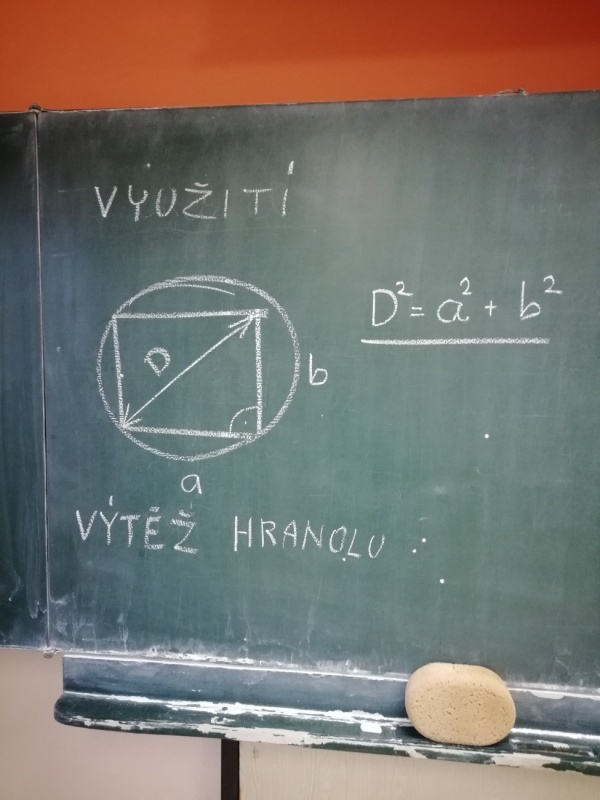 VYUŽITÍ
D² = a² + b²
D
b
a
VÝTĚŽ HRANOLU :